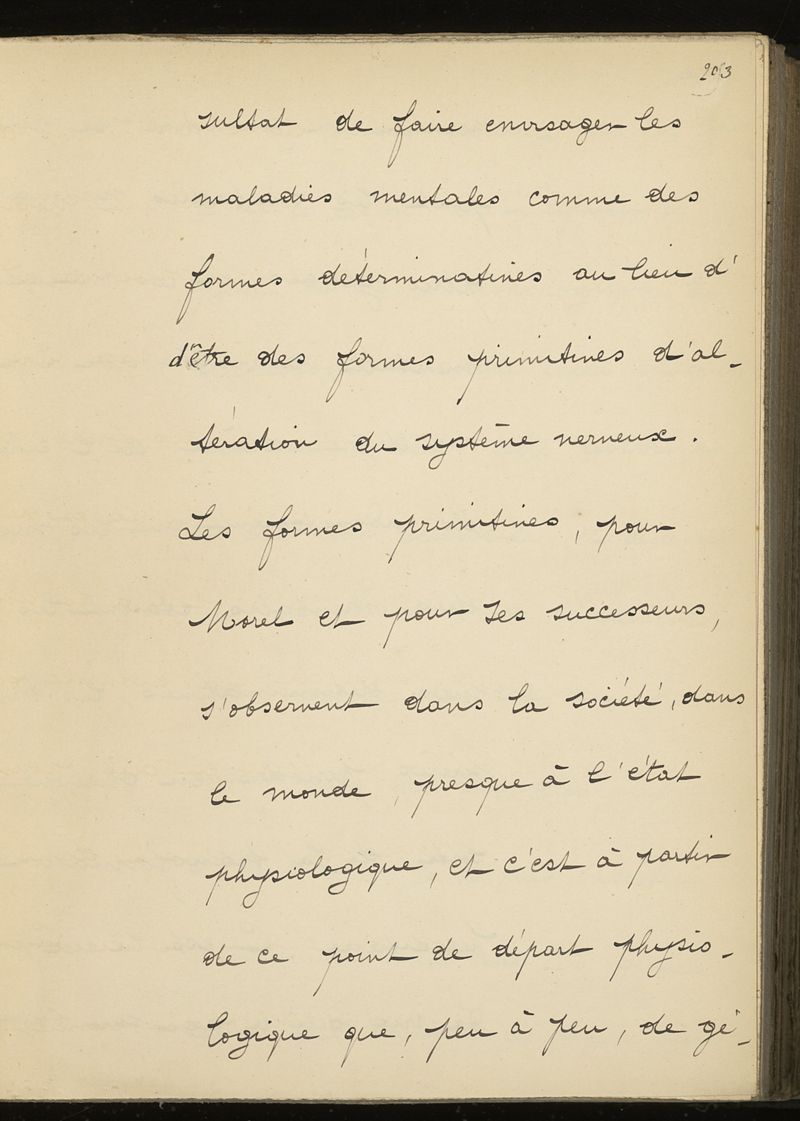 203
sultat de faire envisager les
maladies mentales comme des
formes déterminatives au lieu d'
d'être des formes primitives d'al-
tération du système nerveux.
Les formes primitives, pour
Morel et pour ses successeurs,
s'observent dans la société, dans
le monde, presque à l'état
physiologique, et c'est à partir
de ce point de départ physio-
logique que, peu à peu, de gé-